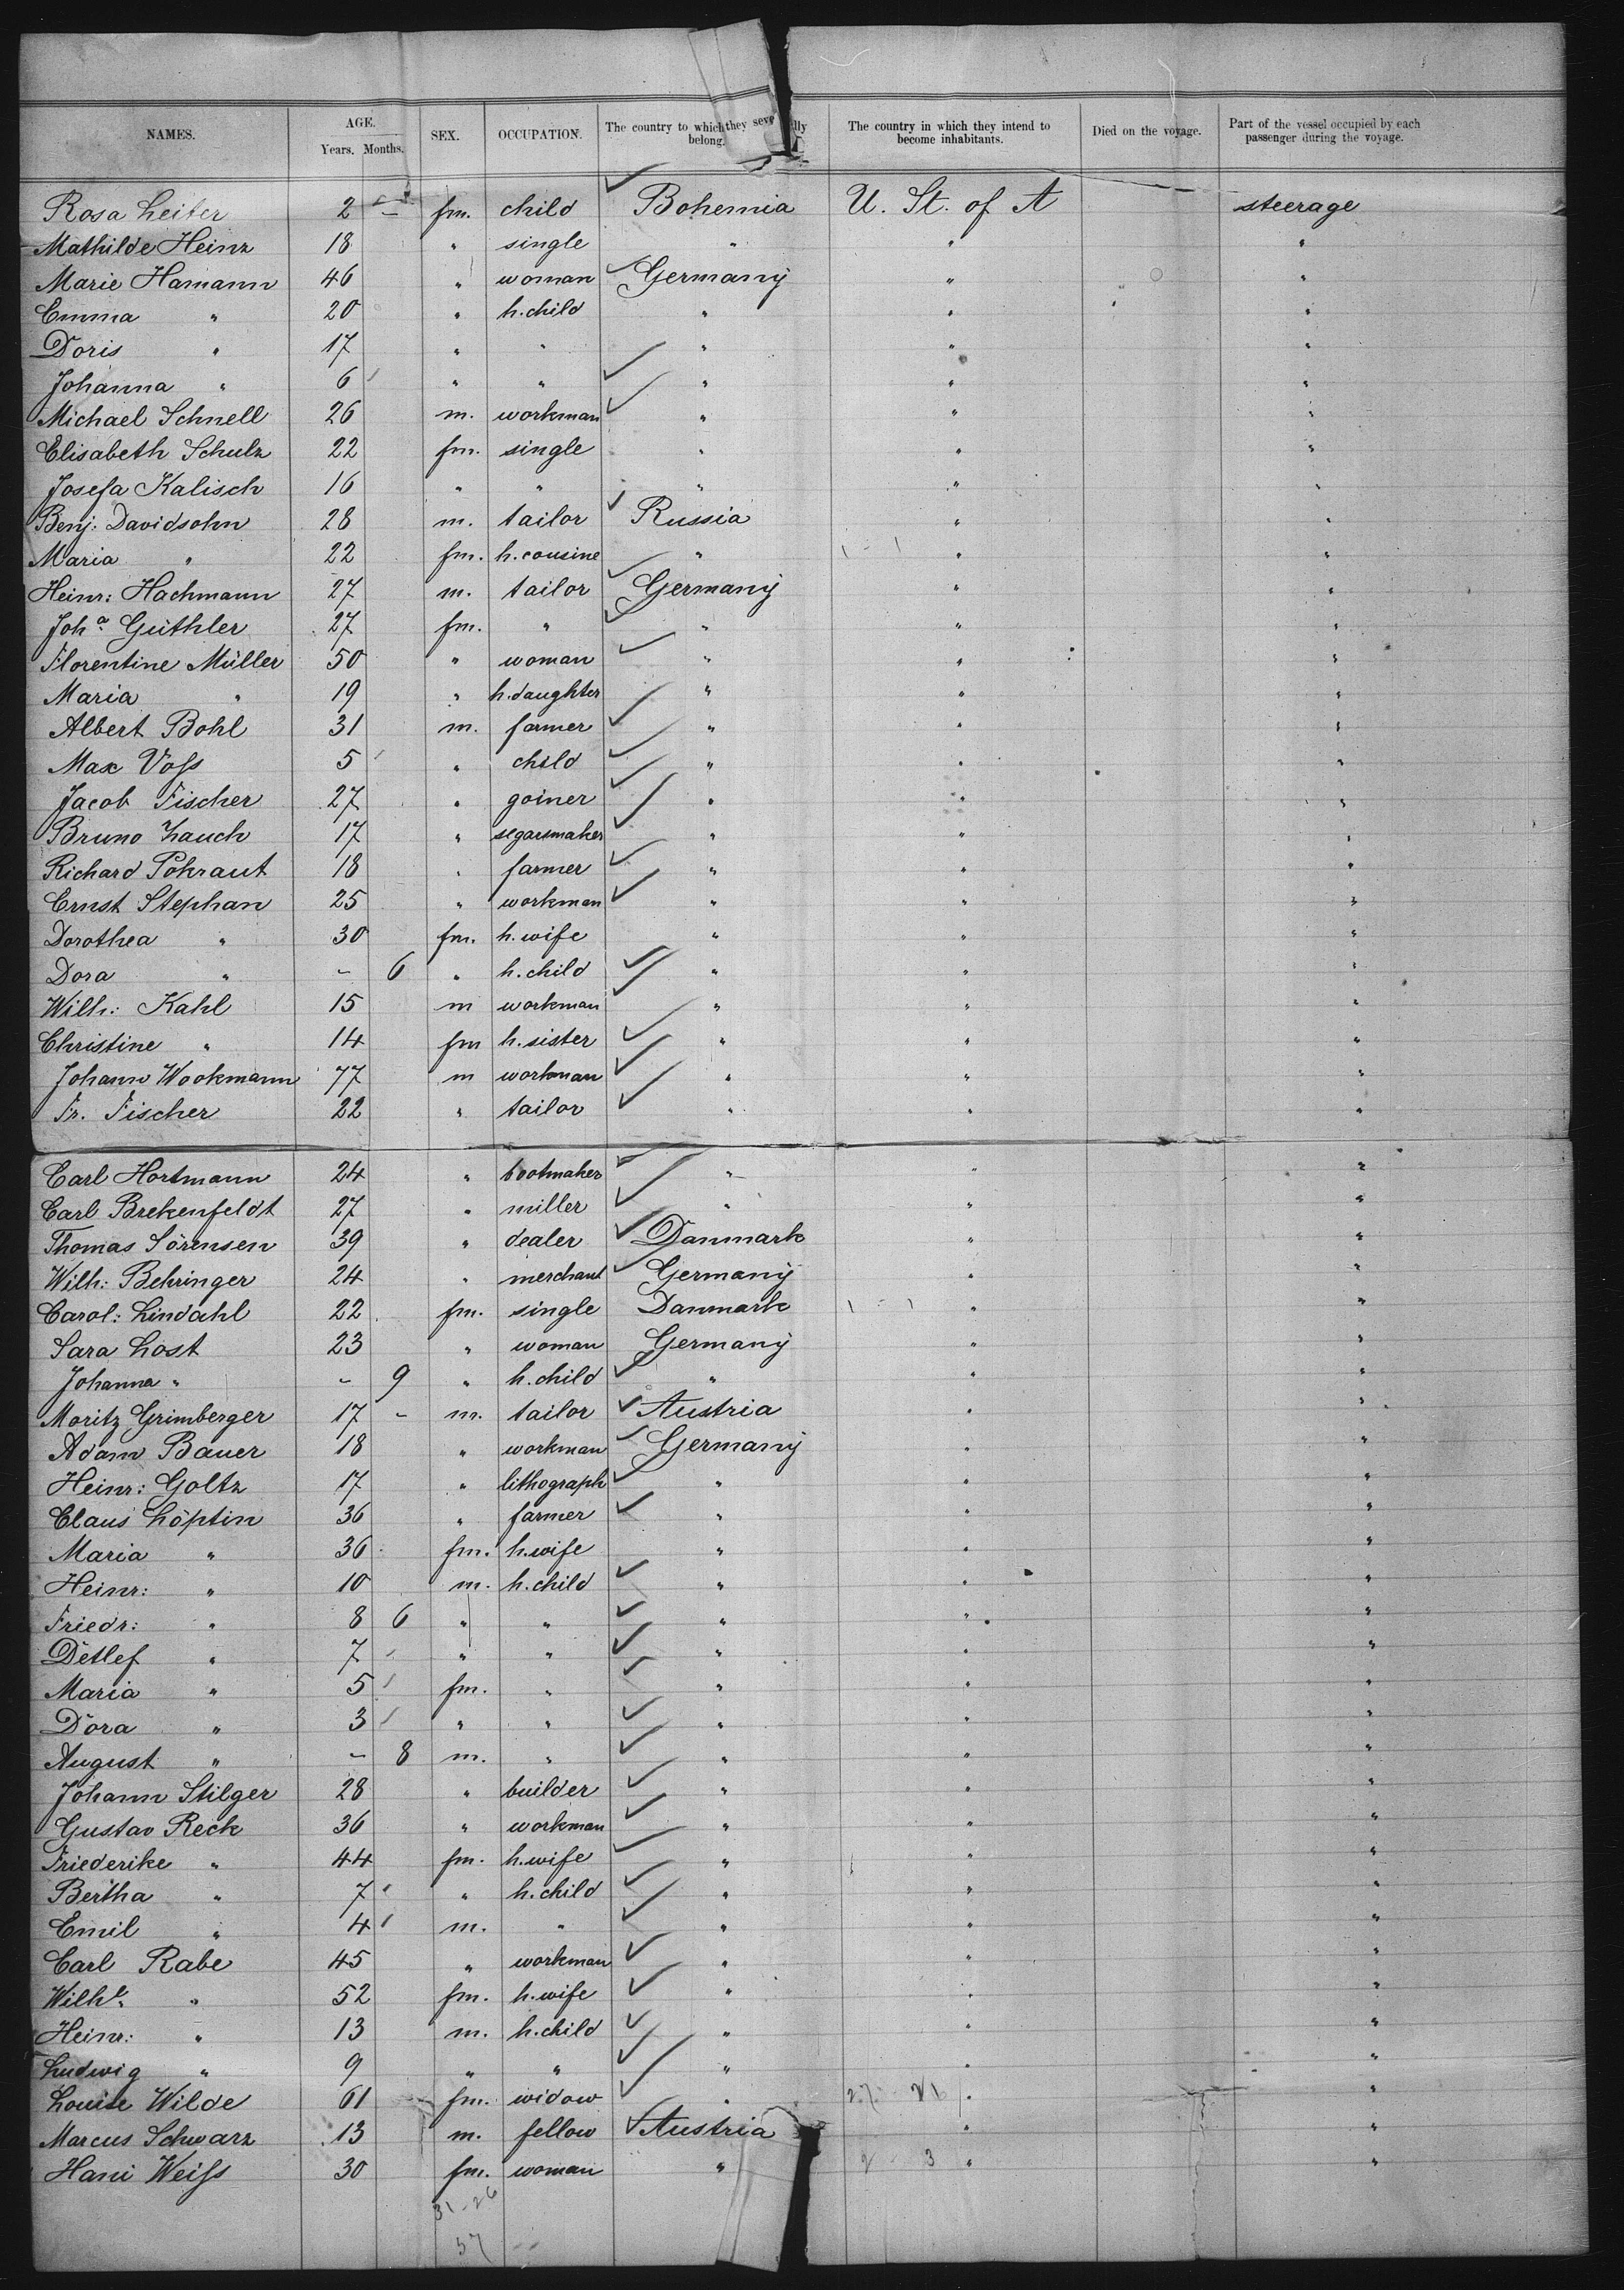 NAMES. AGE. Years. Months. SEX. OCCUPATION. The country to which they seve lly belong. The country in which they intend to become inhabitants. Died on the voyage. Part of the vessel occupied by each passenger during the voyage.
Rosa Leiter 2 – fm. child Bohemia U. St. of A steerage
Mathilde Heinz 18 " single " " "
Marie Hamann 46 " woman Germany " "
Emma " 20 " h. child " " "
Doris " 17 " " " " "
Johanna " 6 " " " " "
Michael Schnell 26 m. workman " " "
Elisabeth Schulz 22 fm. single " " "
Josefa Kalisch 16 " " " " "
Benj: Davidsohn 28 m. tailor Russia " "
Maria " 22 fm. h. cousine " 1 - 1 " "
Heinr: Hachmann 27 m. tailor Germany " "
Joh.a Güthler 27 fm. " " " "
Florentine Müller 50 " woman " " "
Maria " 19 " h. daughter " " "
Albert Bohl 31 m. farmer " " "
Max Voss 5 " child " " "
Jacob Fischer 27 " goiner " " "
Bruno Zauch 17 " segarsmaker " " "
Richard Pohraut 18 " farmer " " "
Ernst Stephan 25 " workman " " "
Dorothea " 30 fm. h. wife " " "
Dora " – 6 " h. child " " "
Wilh: Kahl 15 m workman " " "
Christine " 14 fm h. sister " " "
Johann Wookmann 77 m workman " " "
Fr. Fischer 22 " tailor " " "
Carl Hortmann 24 " bootmaker " " "
Carl Brekenfeldt 27 " miller " " "
Thomas Sörensen 39 " dealer Danmark " "
Wilh: Behringer 24 " merchant Germany " "
Carol: Lindahl 22 fm. single Danmark 1 - 1 " "
Sara Lost 23 " woman Germany " "
Johanna " – 9 " h. child " " "
Moritz Grimberger 17 – m. tailor Austria " "
Adam Bauer 18 " workman Germany " "
Heinr: Goltz 17 " lithograph " " "
Claus Löptin 36 " farmer " " "
Maria " 36 fm. h. wife " " "
Heinr: " 10 m. h. child " " "
Friedr: " 8 6 " " " " "
Detlef " 7 " " " " "
Maria " 5 fm. " " " "
Dora " 3 " " " " "
August " – 8 m. " " " "
Johann Stilger 28 " builder " " "
Gustav Reck 36 " workman " " "
Friederike " 44 fm. h. wife " " "
Bertha " 7 " h. child " " "
Emil " 4 m. " " " "
Carl Rabe 45 " workman " " "
Wilhe. " 52 fm. h. wife " " "
Heinr: " 13 m. h. child " " "
Ludwig " 9 " " " " "
Louise Wilde 61 fm. widow " " "
Marcus Schwarz 13 m. fellow Austria " "
Hani Weiss 30 fm. woman " 2 - 3 " "
31 - 26
57